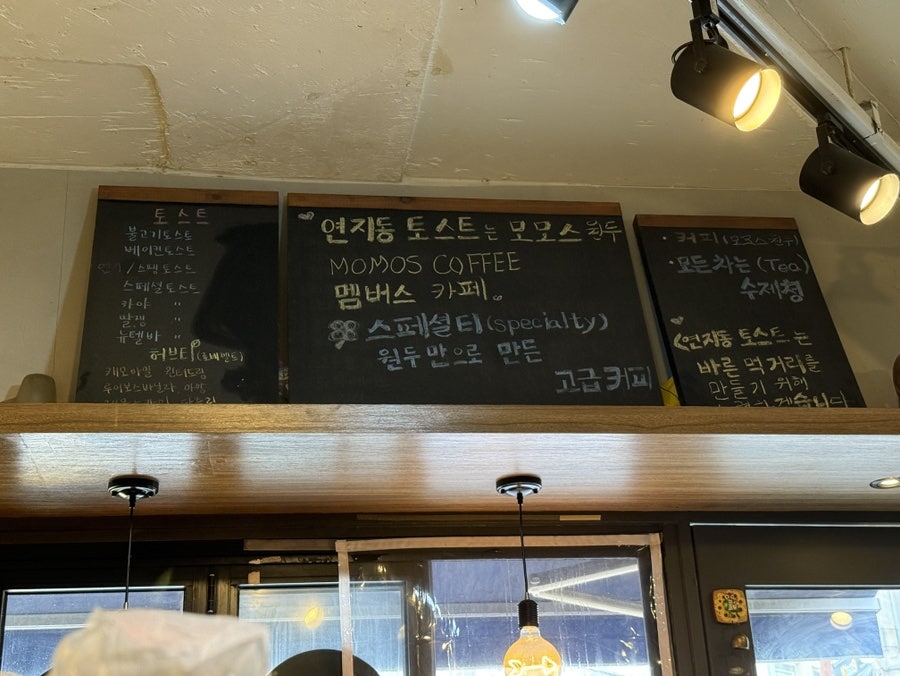 토스트
불고기토스트
베이컨토스트
/스팸토스트
스페셜토스트
카야 〃
딸쨈 〃
뉴텔바 〃
허브티
캐모마일
루이보스바닐라
연지동 토스트는 모모스 원두
MOMOS COFFEE
멤버스 카페。
스페셜티(specialty)
원두만으로 만든
고급커피
· 커피
· 모든차는 (Tea)
수제청
(연지동 토스트는
바른 먹거리를
만들기 위해